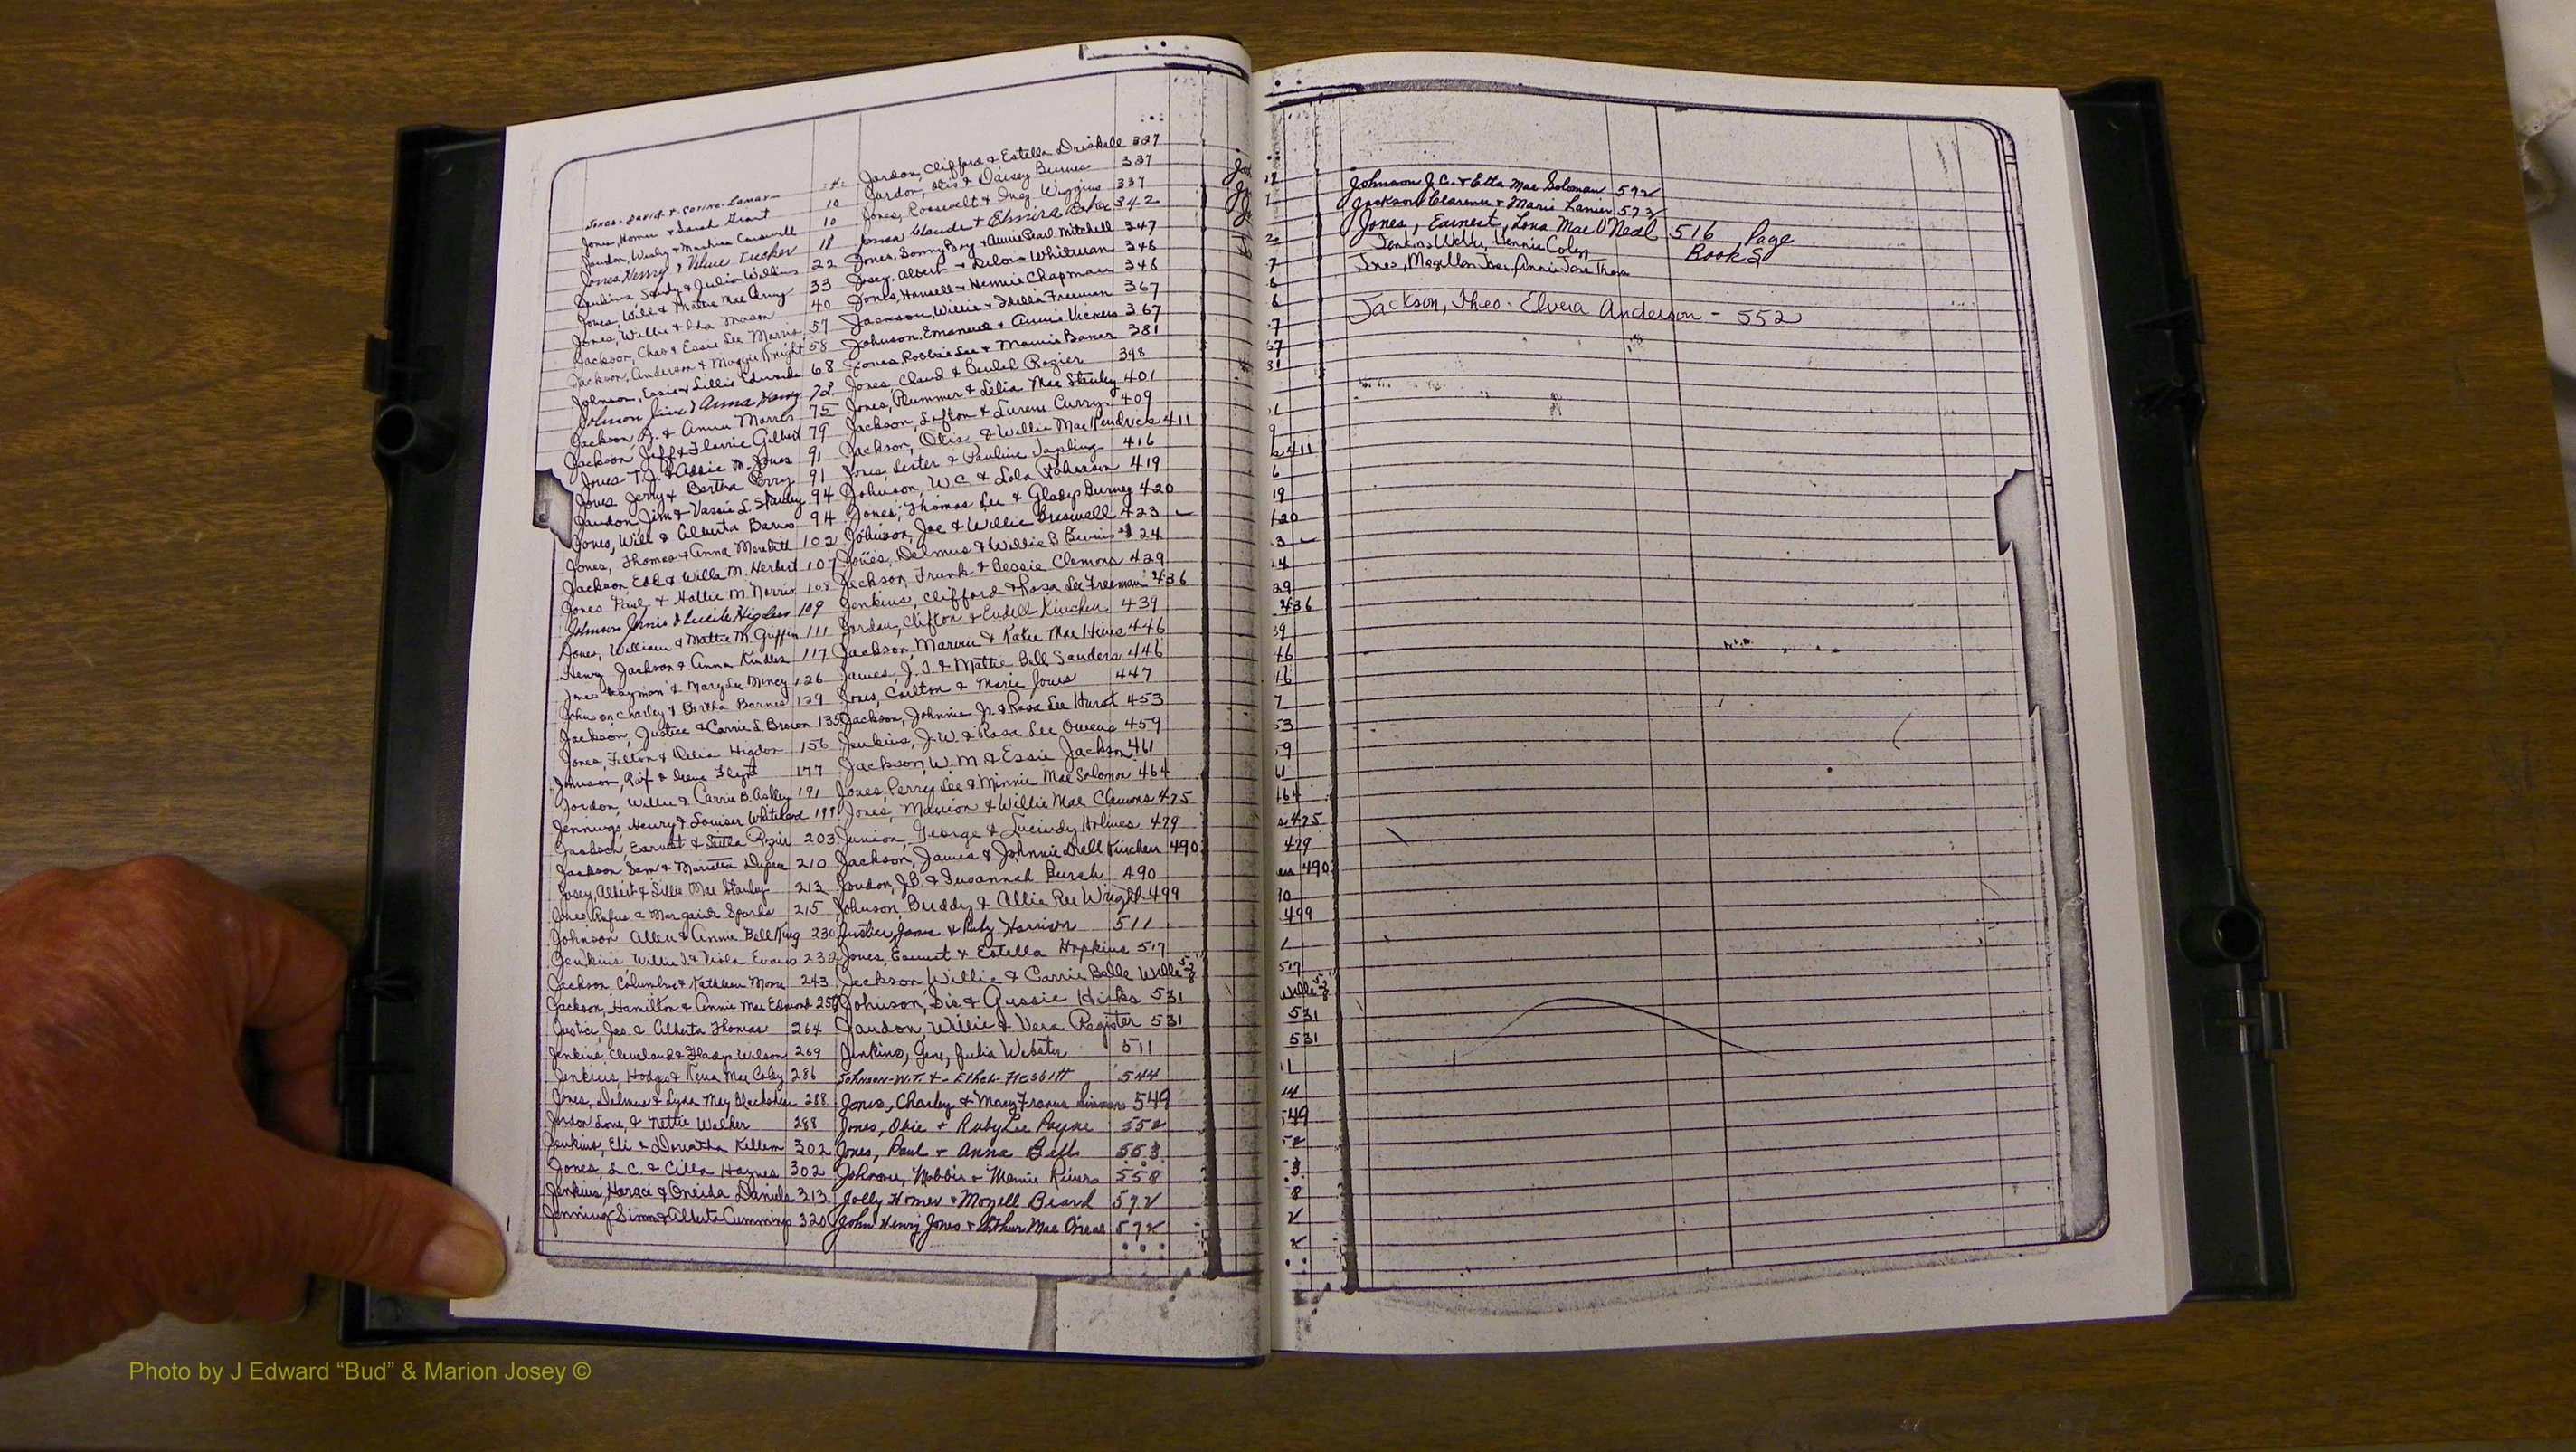 Jones David & Corine Lamar
Jones, Homer & Sarah Grant 10
Jaudon, Wesley & Carswell 10
Jones Henry & Tucker 18
Jenkins Sandy & Julia Willis 22
Jones, Will & Mattie Mae 33
Jones, Willie & Ida Mason 40
Jackson, Chas & Essie Lee Morris 57
Jackson, Anderson & Maggie Knight 58
Johnson, Essie & Lillie Edwards 68
Johnson Jim & Anna 72
Jackson, & Annie Morris 75
Jackson, Jeff & Florrie Gilbert 79
Jones T.J. & Addie M. Jones 91
Jones Jerry & Bertha Perry 91
Jaudon, Jim & Vassie L. Stanley 94
Jones, Will & Alberta Barns 94
Jones, Thomas & Anna Meredith 102
Jackson, Edd & Willa M. Herbert 107
Jones Paul & Hattie M. Norris 108
Johnson & Lucile Higdon 109
Jones, William & Mattie M. Griffin 111
Henry Jackson & Anna Kindle 117
Jones Raymon & Mary Lee 126
Johnson, Charley & Bertha Barnes 129
Jackson, Justice & Carrie L Brown 135
Jones, Felton & Delia Higdon 156
Johnson, & Irene 177
Jordon, Willie & Carrie B. Ashley 191
Jennings, Henry & Louiser Whitehead 199
Jackson, Earnest & 203
Jackson Sam & Marietta Dupree 210
Josey, Albert & Lillie Mae Stanley 213
Jones, Rufus & Margaret Sparks 215
Johnson Allen & Annie Bell King 230
Jenkins Willie J. & Viola Evans 232
Jackson, Columbus & Kathleen Moore 243
Jackson, Hamilton & Annie Mae Edmond 259
Justice, Jas. & Alberta Thomas 264
Jenkins, Cleveland & Gladys Wilson 269
Jenkins, Hodges & Rena Mae Coley 286
Jones, Delmus & Lyda May Blackshear 288
Jordon Lone, & Nettie Walker 288
Jenkins, Eli & Doreatha Killem 302
Jones, L.C. & Cilla Haynes 302
Jenkins, Horace & Oneida Daniels 313
Jennings Simm & Alberta Cummings 320
Jordon, Clifford & Estella Driskell 327
Jordon, Otis & Daisey Burnes 337
Jones, Roosevelt & Inez Wiggins 337
Jones Claude & Elmira 342
Jones, Sonny Boy & Annie Pearl Mitchell 347
Josey, Albert & Delois Whitman 348
Jones, Hansell & Hennie Chapman 348
Jackson, Willie & Idella Freeman 367
Johnson, Emanuel & Annie Vickers 367
Jones, Robbie Lee & Mamie Baker 381
Jones, Claud & Beulah Rozier 398
Jones, Plummer & Lelia Mae Stanley 401
Jackson, Lifton & Lurene Curry 409
Jackson, Otis & Willie Mae Kendricks 411
Jones Lester & Pauline 416
Johnson, W.C. & Lola Robinson 419
Jones, Thomas Lee & Gladys Burney 420
Johnson, Joe & Willie Braswell 423
Jones, Delmus & Willie B 424
Jackson, Frank & Bessie Clemons 429
Jenkins, Clifford & Rosa Lee Freeman 436
Jordan, Clifton & Eudell Kinchen 439
Jackson, Marvin & Katie Mae 446
James, J.T. & Mattie Bell Sanders 446
Jones, Carlton & Marie Jones 447
Jackson, Johnnie Jr. & Rosa Lee Hurst 453
Jenkins, J.W. & Rosa Lee Owens 459
Jackson, W.M. & Essie Jackson 461
Jones, Perry Lee & Minnie Mae Solomon 464
Jones, Marion & Willie Mae Clemons 475
Junion George & Lucindy Holmes 479
Jackson, James & Johnnie Drell Kinchen 490
Joudon, J.B. & Susannah Burch 490
Johnson, Buddy & Allie Ree Wright 499
Justice, James & Ruby Harrison 511
Jones, Earnest & Estella Hopkins 517
Jackson, Willie & Carrie Belle Willis
Johnson, Sis & Gussie Hicks 531
Jaudon, Willie & Vera Register 531
Jenkins, Gene, Julia Webster 511
Johnson - W.T. & - Ethel - Nesbitt 544
Jones, Charley & Mary Frances Simmons 549
Jones, Obie & Ruby Lee Payne 552
Jones, Paul & Anna Bells 553
Johnson, Mobbie & Mamie Rivers 558
Jolly Homer & Mozell Beard 572
John Henry Jones & Arthur Mae O'neal 572
Johnson J.C. & Etta Mae Soloman 572
Jackson Clarence & Marie Lanier 573
Jones, Earnest, Lona Mae O'Neal 516 Page
Jenkins, Hennie Coley Book S
Jones, Annie Jane
Jackson, Theo - Elvera Anderson - 552
411
6
19
420
3
14
29
436
39
46
46
7
53
59
61
464
475
479
490
10
499
517
Willis
531
531
11
14
549
52
3
8
Photo by J Edward “Bud” & Marion Josey ©